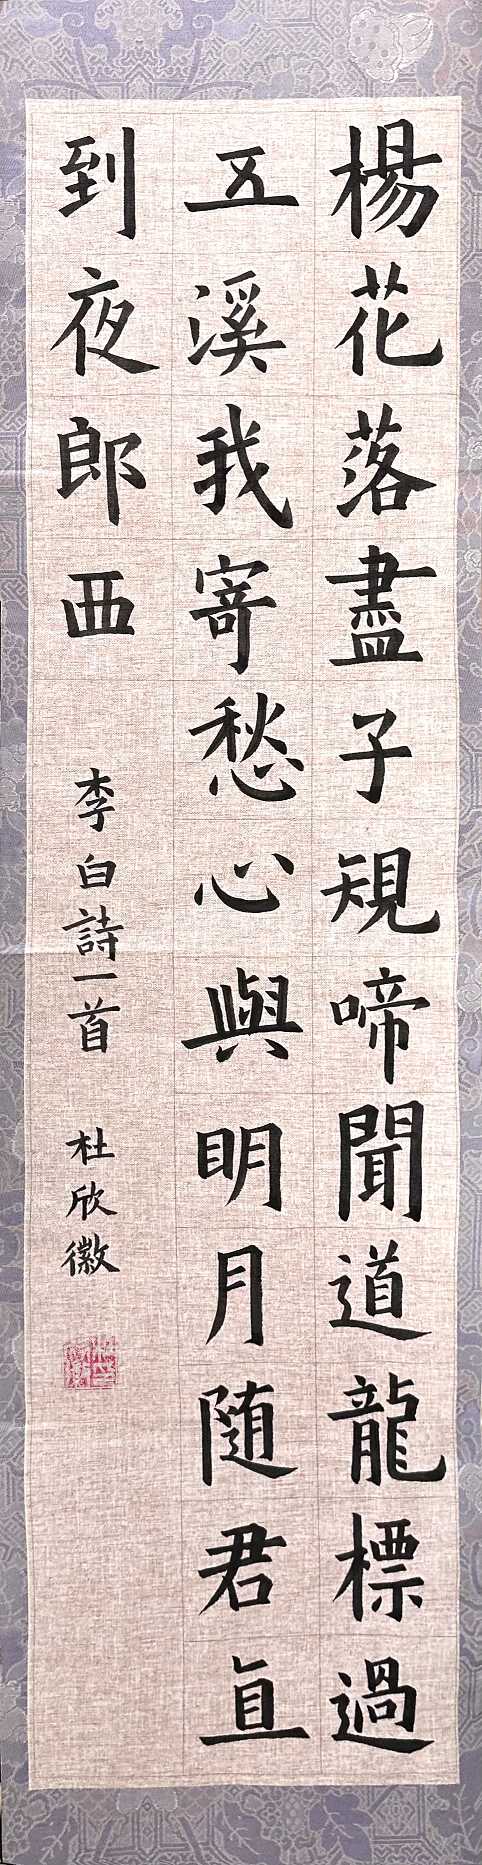 楊花落盡子規啼聞道龍標過
五溪我寄愁心與明月随君直
到夜郎西
李白詩一首
杜欣徽